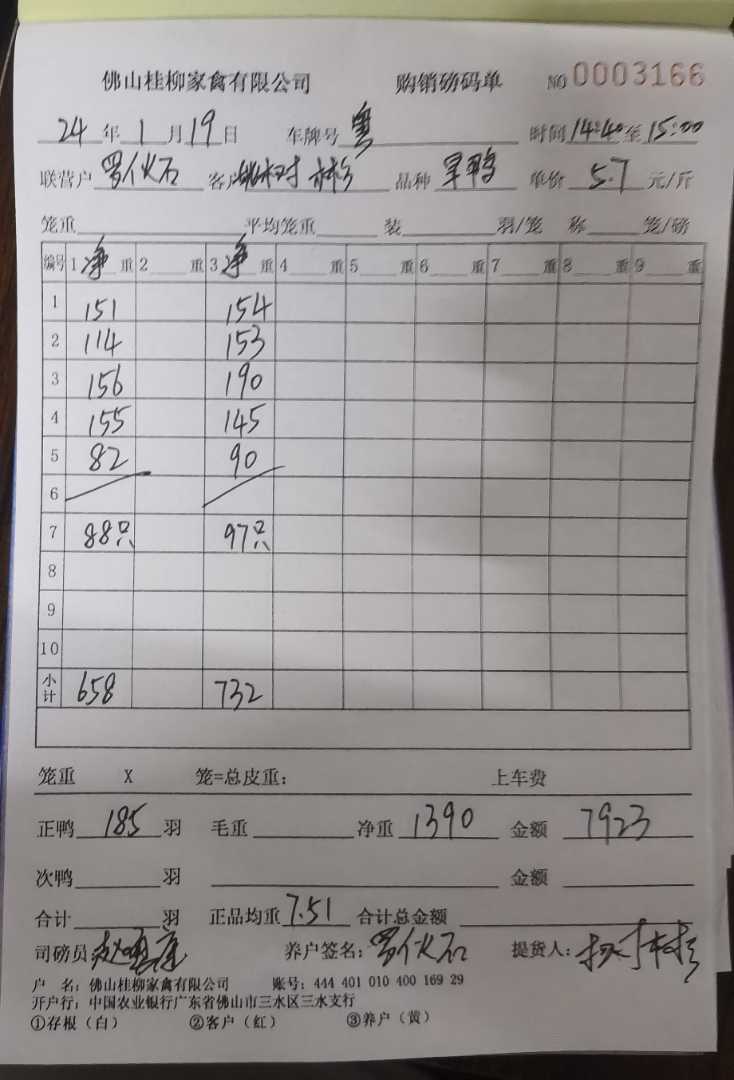 佛山桂柳家禽有限公司 购销磅码单 NO 0003166
24年1月19日 车牌号 粤 时间14:40至15:00
联营户 罗伙石 客户 树彬 品种 旱鸭 单价 5.7 元/斤
笼重 平均笼重 装 羽/笼 称 笼/磅
编号 1 净 重 2 重 3 净 重 4 重 5 重 6 重 7 重 8 重 9 重
1 151 154
2 114 153
3 156 190
4 155 145
5 82 90
6
7 88只 97只
8
9
10
小计 658 732
笼重 X 笼=总皮重: 上车费
正鸭 185 羽 毛重 净重 1390 金额 7923
次鸭 羽 金额
合计 羽 正品均重 7.51 合计总金额
司磅员 养户签名: 罗伙石 提货人:
户 名: 佛山桂柳家禽有限公司 账号: 444 401 010 400 169 29
开户行: 中国农业银行广东省佛山市三水区三水支行
①存根(白) ②客户(红) ③养户(黄)